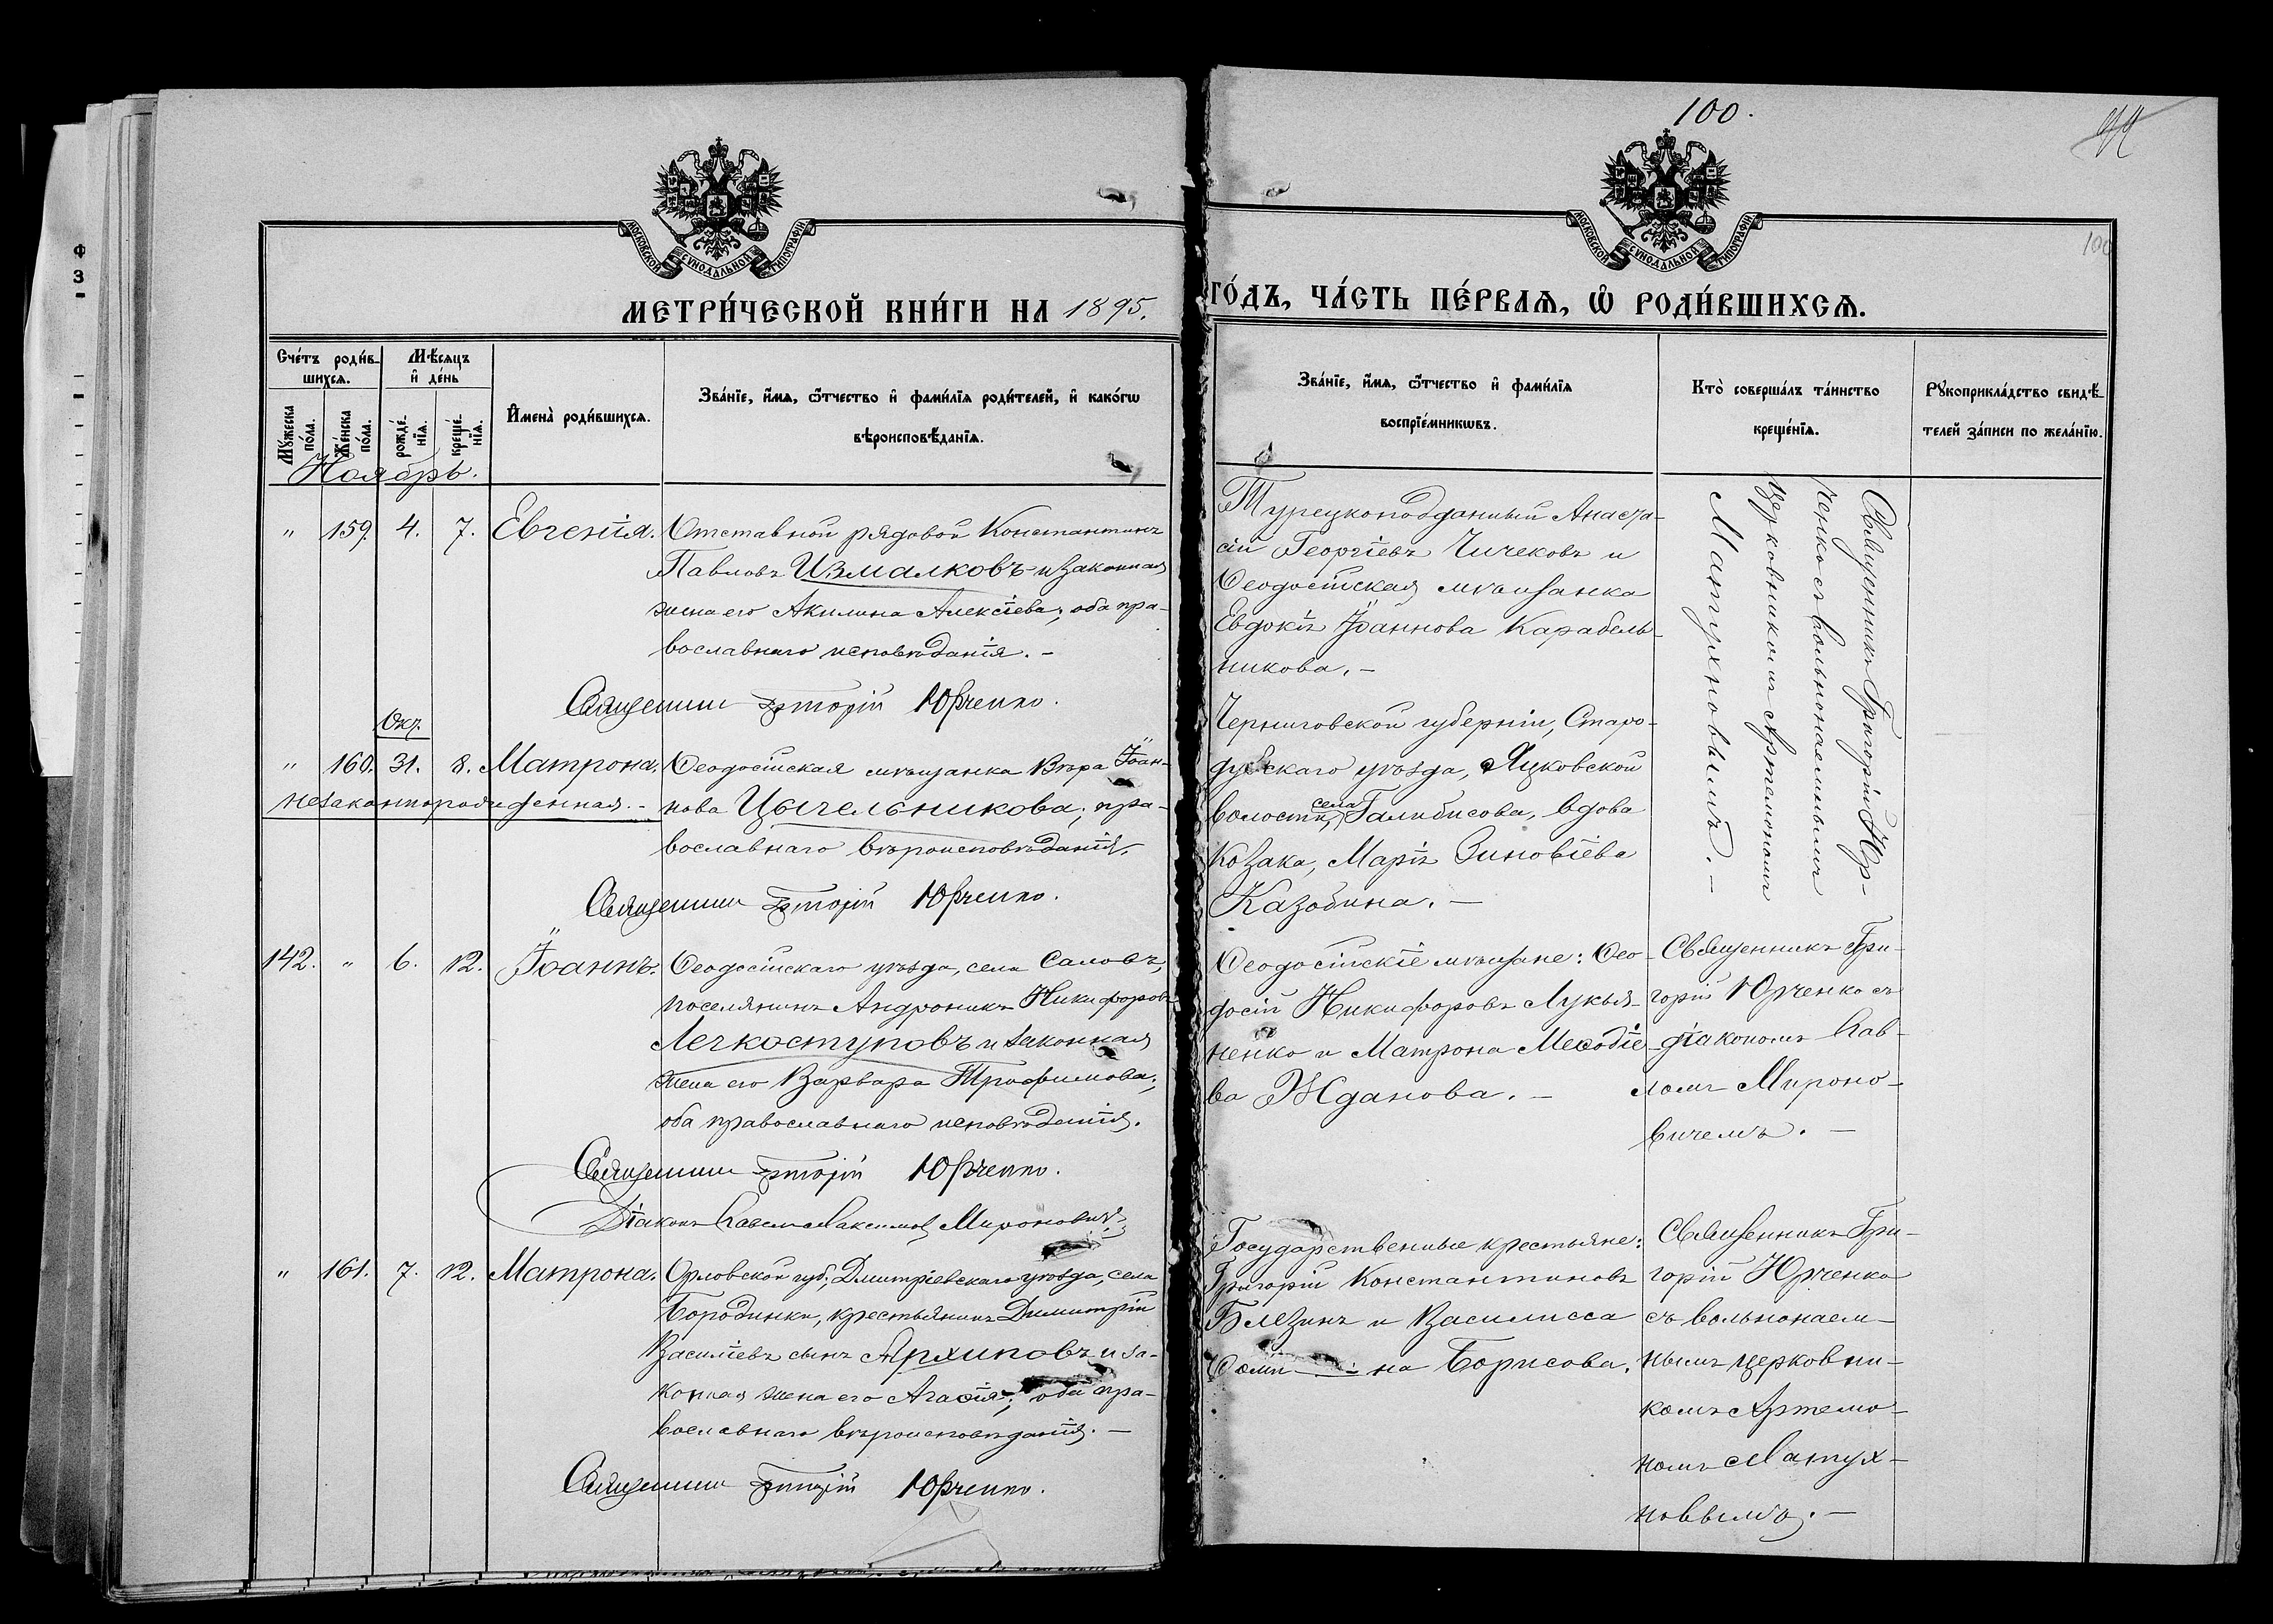 100.
99
100
МОСКОВСКОЙ СѴНОДАЛЬНОЙ ТИПОГРАФІИ
МОСКОВСКОЙ СѴНОДАЛЬНОЙ ТИПОГРАФІИ
МЕТРИ́ЧЕСКОЙ КНИ́ГИ НА 1895.
ГО́ДЪ, ЧА́СТЬ ПЕ́РВАѦ, Ѡ҆ РОДИ́ВШИХСѦ.
Сче́тъ роди́в-
шихсѧ.
Мѣ́сѧцъ
и҆ де́нь
Мꙋ́жеска
по́ла.
Же́нска
по́ла.
рожде́-
нїѧ.
креще́-
нїѧ.
И҆мена̀ роди́вшихсѧ.
Зва́нїе, и҆́мѧ, ѻ҆́тчество и҆ фами́лїѧ роди́телей, и҆ како́гѡ
вѣроисповѣ́данїѧ.
Зва́нїе, и҆́мѧ, ѻ҆́тчество и҆ фами́лїѧ
воспрїе́мникѡвъ.
Кто̀ соверша́лъ та́инство
креще́нїѧ.
Рꙋкоприкла́дство свидѣ́-
телей за́писи по жела́нїю.
Ноябрь.
" 159. 4. 7. Евгенія. Отставной рядовой Константинъ
Павловъ Измалковъ и законная
жена его Акилина Алексіева; оба пра-
вославнаго исповѣданія. –
Священникъ Григорій Юрченко.
Турецкоподданный Анаста-
сій Георгіевъ Чичековъ и
Ѳеодосійская мѣщанка
Евдокія Іоаннова Карабель-
никова. –
Священникъ Григорій Юр-
ченко съ вольнонаемнымъ
церковникомъ Артемономъ
Матухновымъ. –
Окт.
" 160. 31. 8. Матрона. Ѳеодосійская мѣщанка Вѣра Іоан-
незаконнорожденная. – нова Цыгельникова; пра-
вославнаго вѣроисповѣданія.
Священникъ Григорій Юрченко.
Черниговской губерніи, Старо-
дубскаго уѣзда, Яцковской
волости, села вдова
козака, Марія Зиновіева
Казобина. –
142. " 6. 12. Іоаннъ. Ѳеодосійскаго уѣзда, села Саловъ,
поселянинъ Андроникъ Никифоровъ
Легкоступовъ и законная
жена его Варвара Трофимова;
оба православнаго исповѣданія.
Священникъ Григорій Юрченко.
Діаконъ Павелъ Максимовъ Мироновичъ
Ѳеодосійскіе мѣщане: Ѳео-
досій Никифоровъ Лукья-
ненко и Матрона Меѳодіе-
ва Жданова. –
Священникъ Гри-
горій Юрченко съ
діакономъ Пав-
ломъ Мироно-
вичемъ. –
" 161. 7. 12. Матрона. Орловской губ; Дмитріевскаго уѣзда, села
Бородинки, крестьянинъ Димитрій
Василіевъ сынъ Архиповъ и за-
конная жена его Агаѳія; оба пра-
вославнаго вѣроисповѣданія. –
Священникъ Григорій Юрченко.
Государственные крестьяне:
Григорій Константиновъ
Блезинъ и Василисса
на Борисова.
Священникъ Гри-
горій Юрченко
съ вольнонаем-
нымъ церковни-
комъ Артемо-
номъ Матух-
новымъ. –